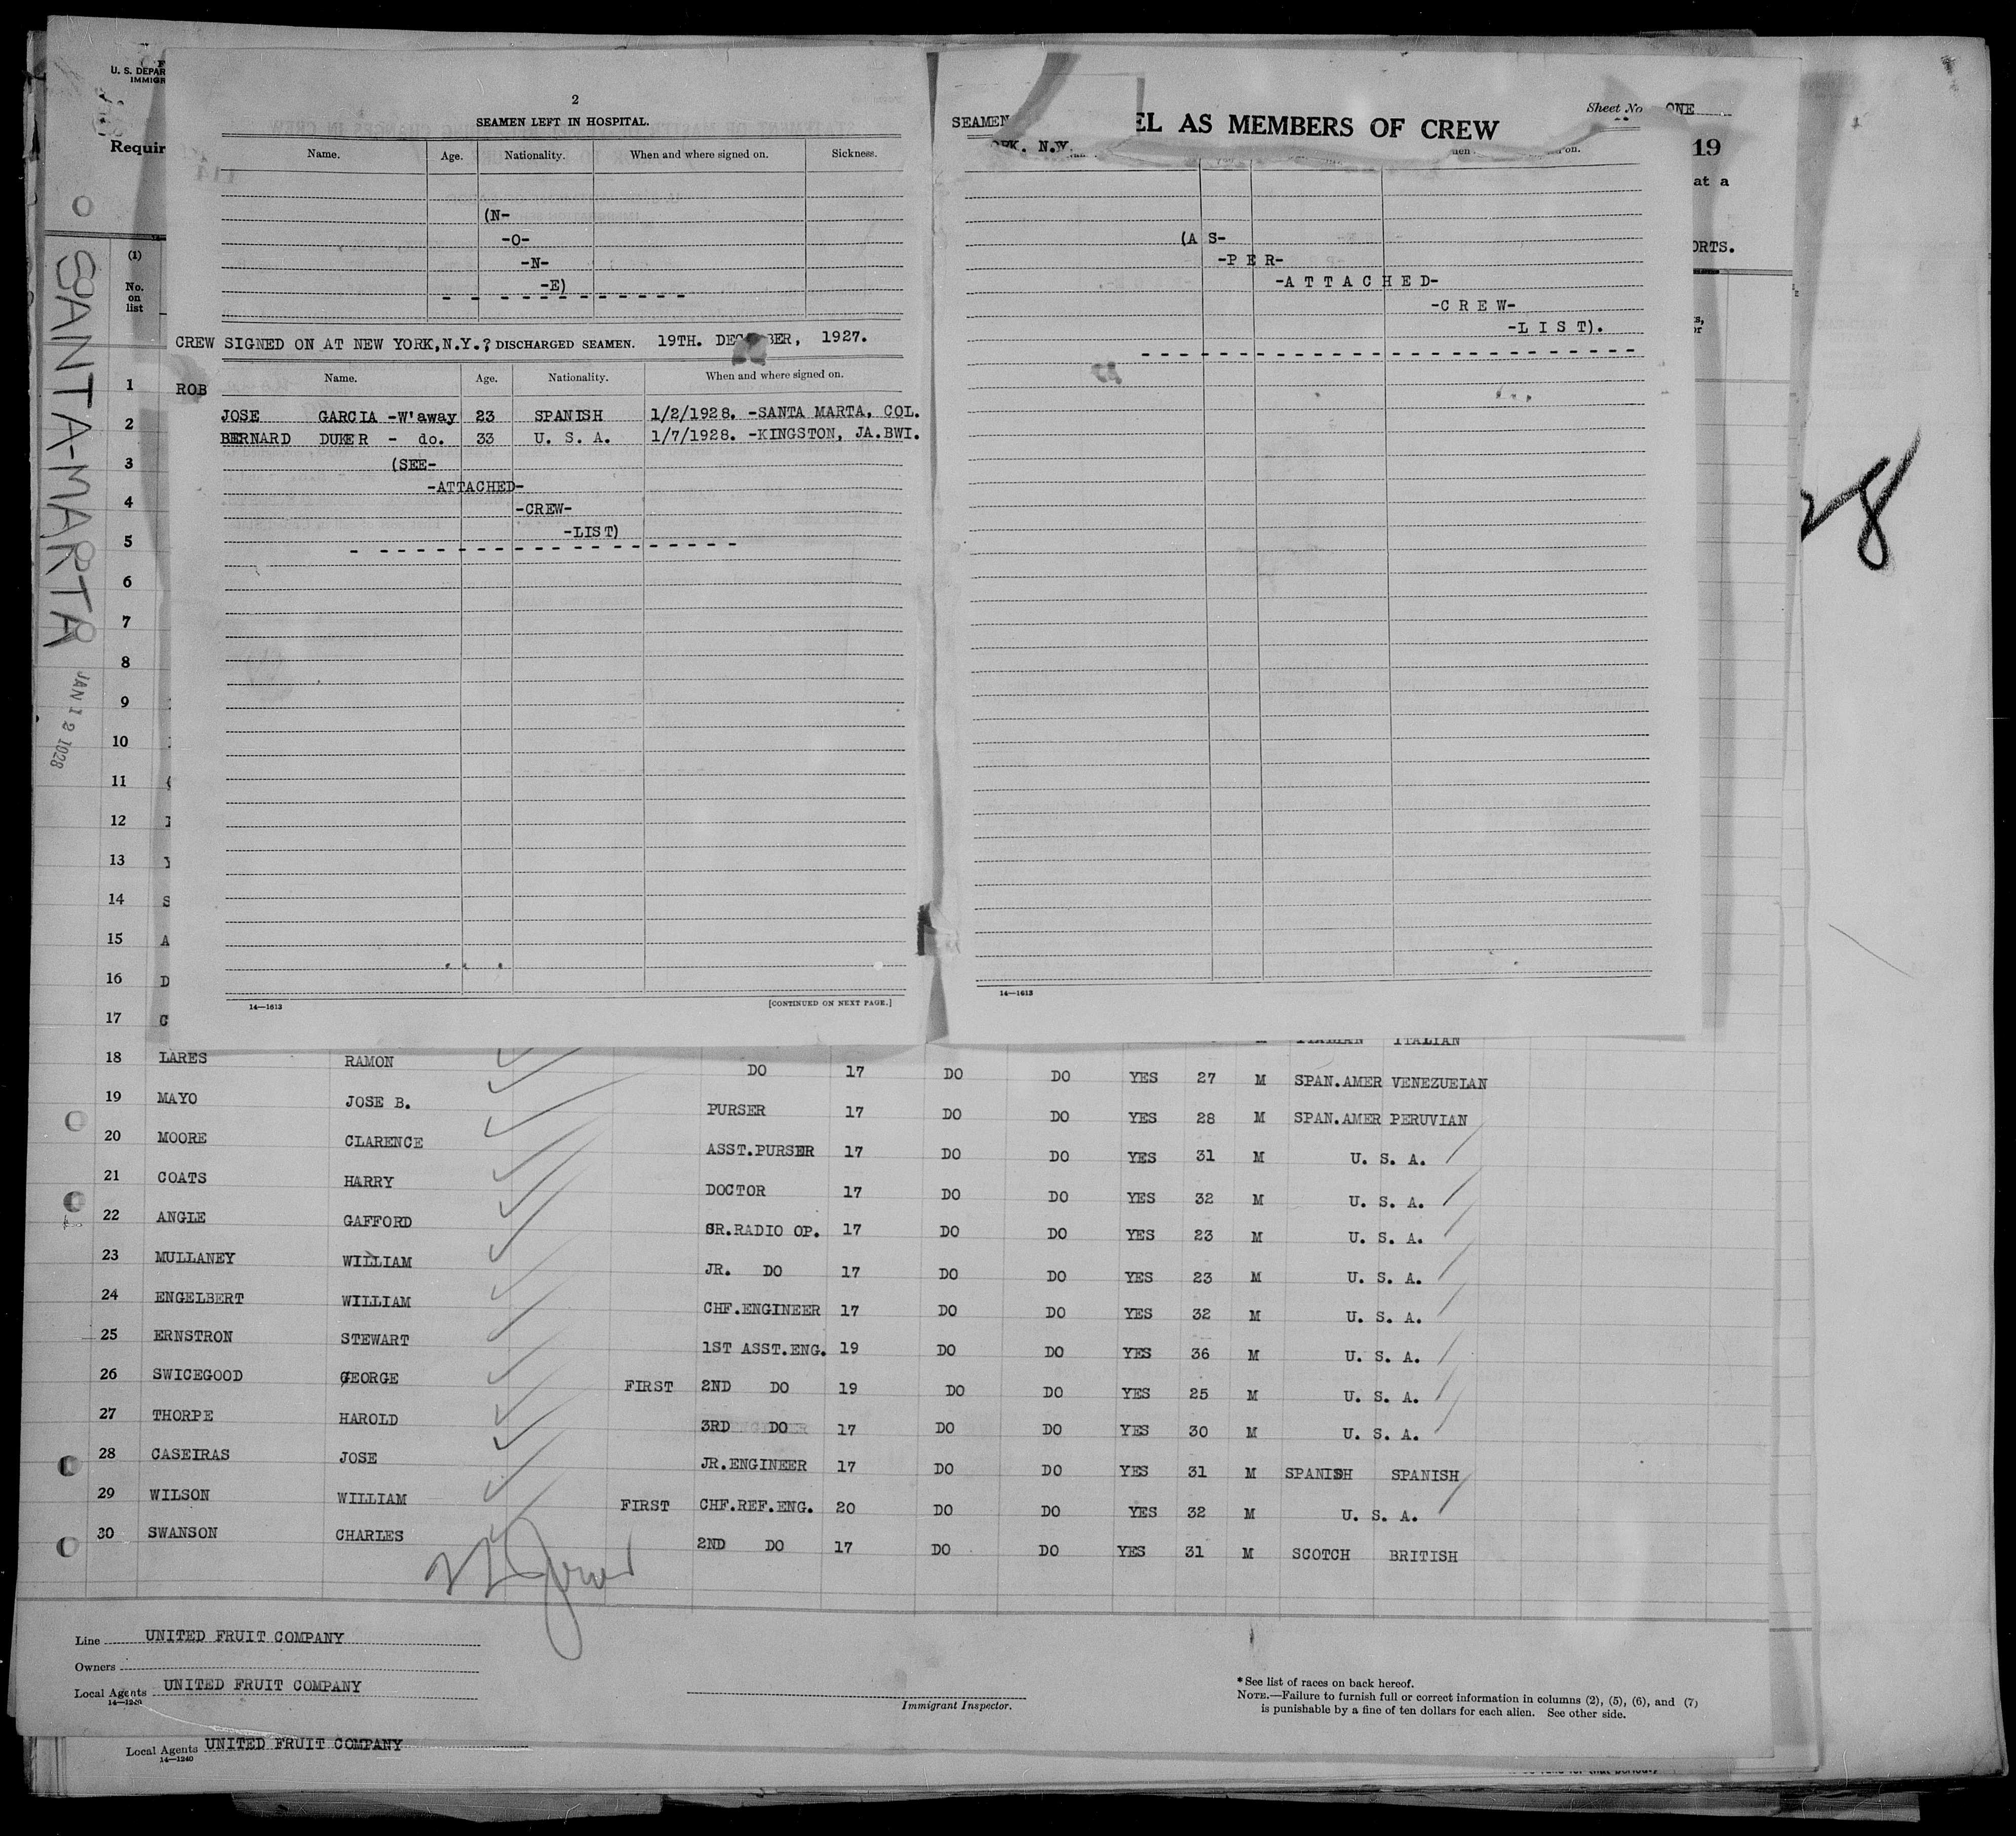 U. S. DEPAR
IMMIGR
Requir
SANTA-MARTA
JAN 12 1928
2
SEAMEN LEFT IN HOSPITAL.
Name. Age. Nationality. When and where signed on. Sickness.
(N-
-O-
-N-
-E)
CREW SIGNED ON AT NEW YORK,N.Y.; DISCHARGED SEAMEN. 19TH. DECEMBER, 1927.
ROB
Name. Age. Nationality. When and where signed on.
JOSE GARCIA -W'away 23 SPANISH 1/2/1928. -SANTA MARTA, COL.
BERNARD DUKER - do. 33 U. S. A. 1/7/1928. -KINGSTON, JA.BWI.
(SEE-
-ATTACHED-
-CREW-
-LIST)
14—1613 [CONTINUED ON NEXT PAGE.]
Sheet No. ONE
SEAMEN
EL AS MEMBERS OF CREW
ORK. N.Y.
on.
19
at a
ORTS.
(A S-
-P E R-
-A T T A C H E D-
-C R E W-
-L I S T).
14—1613
28
(1)
No.
on
list
1
2
3
4
5
6
7
8
9
10
11
12
13
14 S
15 A
16 D
17 C
ITALIAN
18 LARES RAMON DO 17 DO DO YES 27 M SPAN.AMER VENEZUELAN
19 MAYO JOSE B. PURSER 17 DO DO YES 28 M SPAN.AMER PERUVIAN
20 MOORE CLARENCE ASST.PURSER 17 DO DO YES 31 M U. S. A.
21 COATS HARRY DOCTOR 17 DO DO YES 32 M U. S. A.
22 ANGLE GAFFORD SR.RADIO OP. 17 DO DO YES 23 M U. S. A.
23 MULLANEY WILLIAM JR. DO 17 DO DO YES 23 M U. S. A.
24 ENGELBERT WILLIAM CHF.ENGINEER 17 DO DO YES 32 M U. S. A.
25 ERNSTRON STEWART 1ST ASST.ENG. 19 DO DO YES 36 M U. S. A.
26 SWICEGOOD GEORGE FIRST 2ND DO 19 DO DO YES 25 M U. S. A.
27 THORPE HAROLD 3RD DO 17 DO DO YES 30 M U. S. A.
28 CASEIRAS JOSE JR.ENGINEER 17 DO DO YES 31 M SPANISH SPANISH
29 WILSON WILLIAM FIRST CHF.REF.ENG. 20 DO DO YES 32 M U. S. A.
30 SWANSON CHARLES 2ND DO 17 DO DO YES 31 M SCOTCH BRITISH
Line UNITED FRUIT COMPANY
Owners
Local Agents UNITED FRUIT COMPANY
14—1240
Immigrant Inspector.
* See list of races on back hereof.
NOTE.—Failure to furnish full or correct information in columns (2), (5), (6), and (7)
is punishable by a fine of ten dollars for each alien. See other side.
Local Agents UNITED FRUIT COMPANY
14—1240